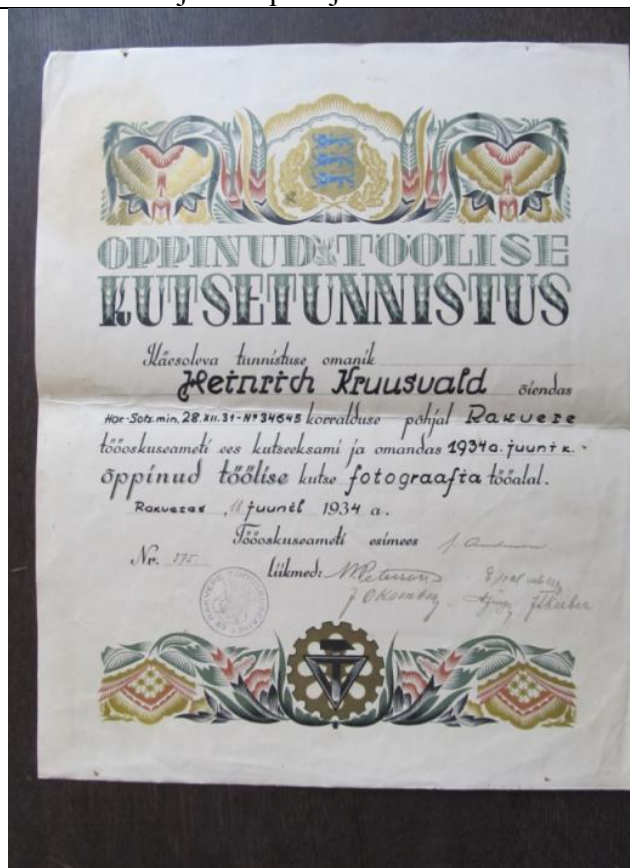 ÕPPINUD TÖÖLISE
KUTSETUNNISTUS
Käesoleva tunnistuse omanik
Heinrich Kruusvald õiendas
Har-Sots.min. 28.XII.31-Nº 34645 korralduse põhjal Rakvere
tööoskuseameti ees kutseeksami ja omandas 1934a. juuni k.
õppinud töölise kutse fotograafia tööalal.
Rakveres 11 juunil 1934 a.
Tööoskuseameti esimees
Nr. 375.
liikmed: M. Peterson
J. Oksenberg.